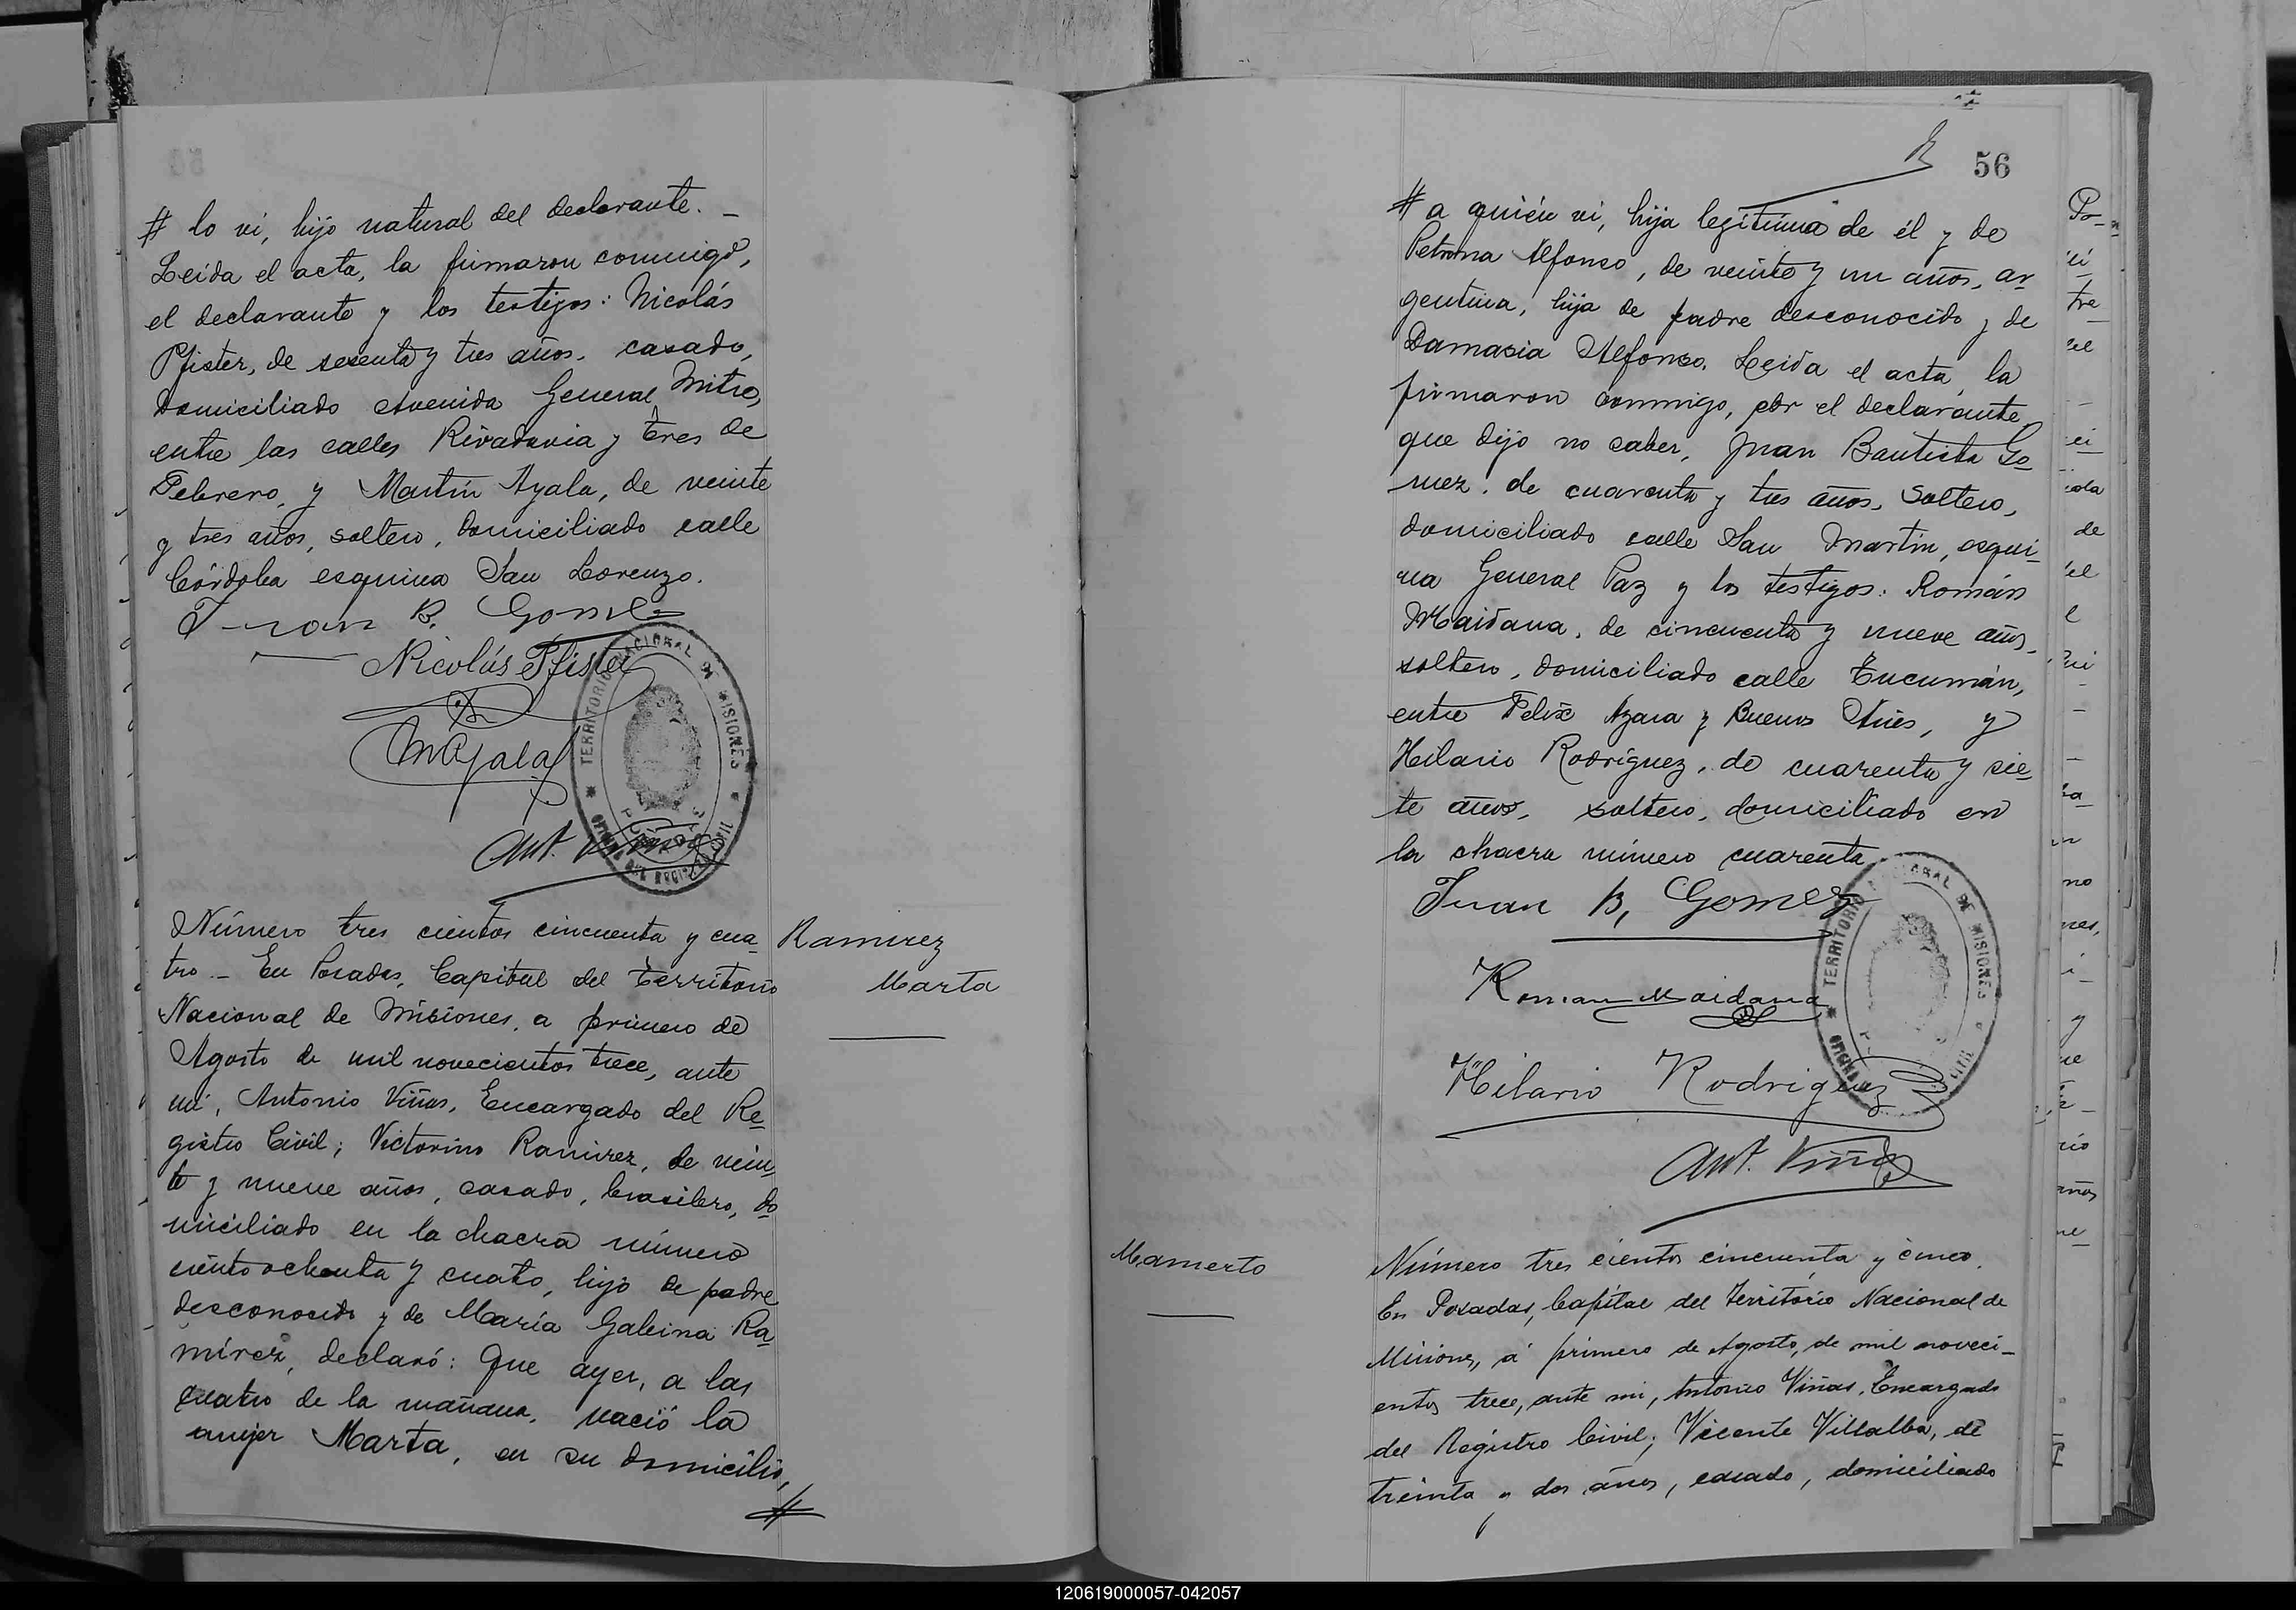 # lo vi, hijo natural del declarante. _
Leida el acta, la firmaron conmigo,
el declarante y los testigos: Nicolás
Pfister, de sesenta y tres años, casado,
domiciliado Avenida General Mitre,
entre las calles Rivadavia y tres de
Febrero, y Martín Ayala, de veinte
y tres años, soltero, domiciliado calle
Córdoba esquina San Lorenzo.
Juan B. Gomez
Nicolás Pfister
MAyala
Ant. Viñas
TERRITORIO NACIONAL DE MISIONES
Número tres cientos cincuenta y cua_
tro._ En Posadas, Capital del territorio
Nacional de Misiones, a primero de
Agosto de mil novecientos trece, ante
mí, Antonio Viñas, Encargado del Re_
gistro Civil; Victorino Ramirez, de vein_
te y nueve años, casado, brasilero, do_
miciliado en la chacra número
ciento ochenta y cuatro, hijo de padre
desconocido y de María Ra_
mírez, declaró: Que ayer, a las
cuatro de la mañana, nació la
mujer Marta, en su domicilio,
#
Ramirez
Marta
56
# a quién vi, hija legítima de él y de
Petrona Alfonso, de veinte y un años, ar
gentina, hija de padre desconocido y de
Damasia Alfonso. Leida el acta, la
firmaron conmigo, por el declarante
que dijo no saber, Juan Bautista Go_
mez, de cuarenta y tres años, soltero,
domiciliado calle San Martín, esqui_
na General Paz y los testigos: Román
Maidana, de cincuenta y nueve años,
soltero, domiciliado calle Tucumán,
entre Felix Azara y Buenos Aires, y
Hilario Rodríguez, de cuarenta y sie_
te años, soltero, domiciliado en
la chacra número cuarenta
Juan B, Gomez
Roman Maidana
Hilario Rodriguez
Ant. Viñas
TERRITORIO NACIONAL DE MISIONES
Mamerto
Número tres cientos cincuenta y cinco.
En Posadas, Capital del Territorio Nacional de
Misiones, á primero de Agosto, de mil noveci_
entos trece, ante mi, Antonio Viñas, Encargado
del Registro Civil; Vicente Villalba, de
treinta y dos años, casado, domiciliado
120619000057-042057